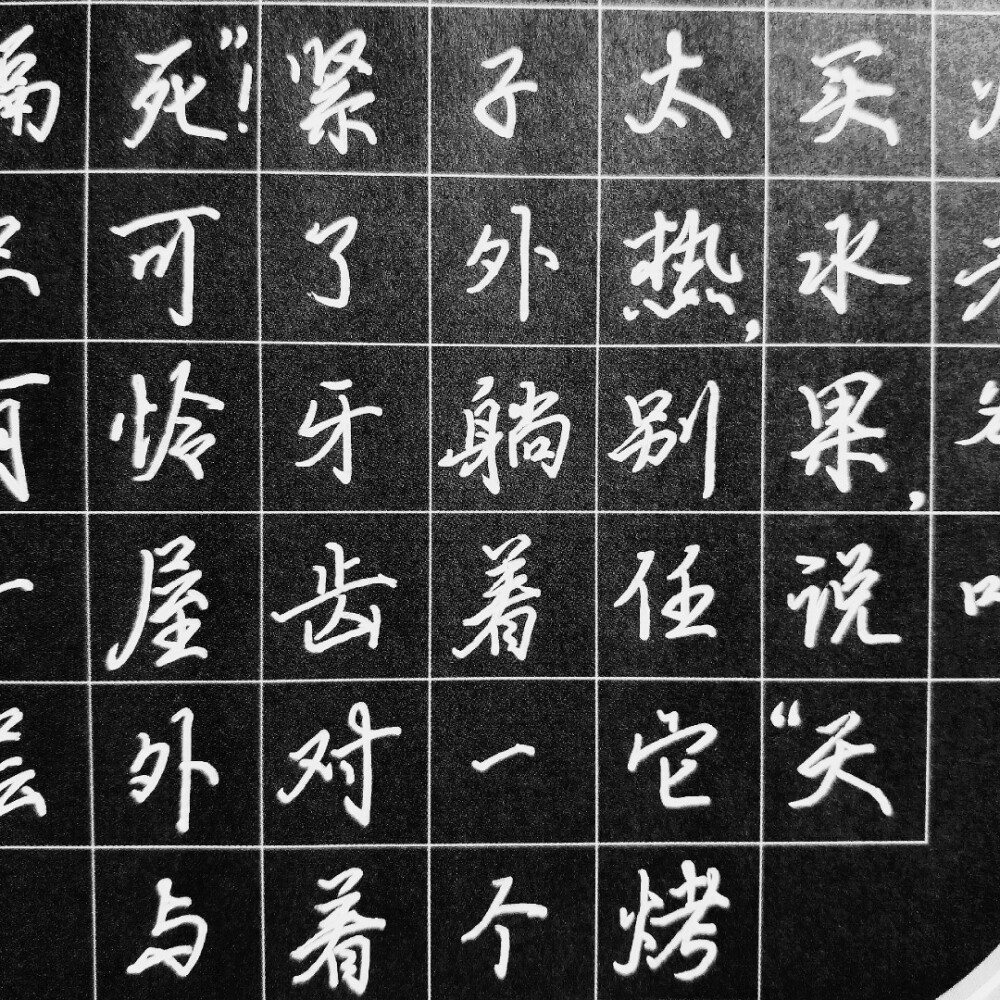 买水果,说“天
太热,别任它烤
子外躺着一个
紧了牙齿对着
死”!可怜屋外与